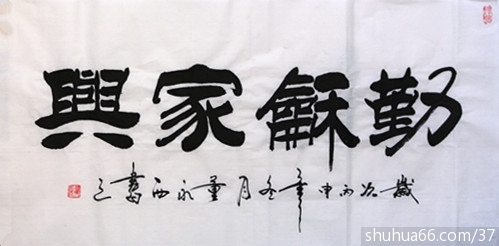 勤龢家興
歲次丙申年冬月董永西書之
shuhua66.com/37